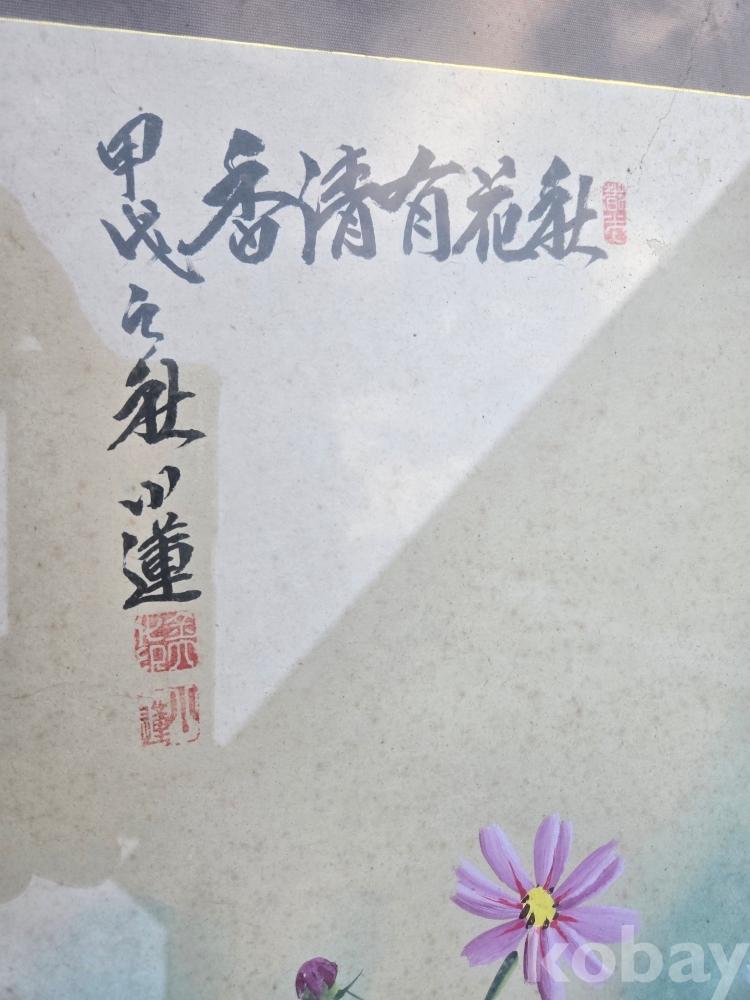 秋花有清香
甲戌之秋 小蓮
小蓮
kobay